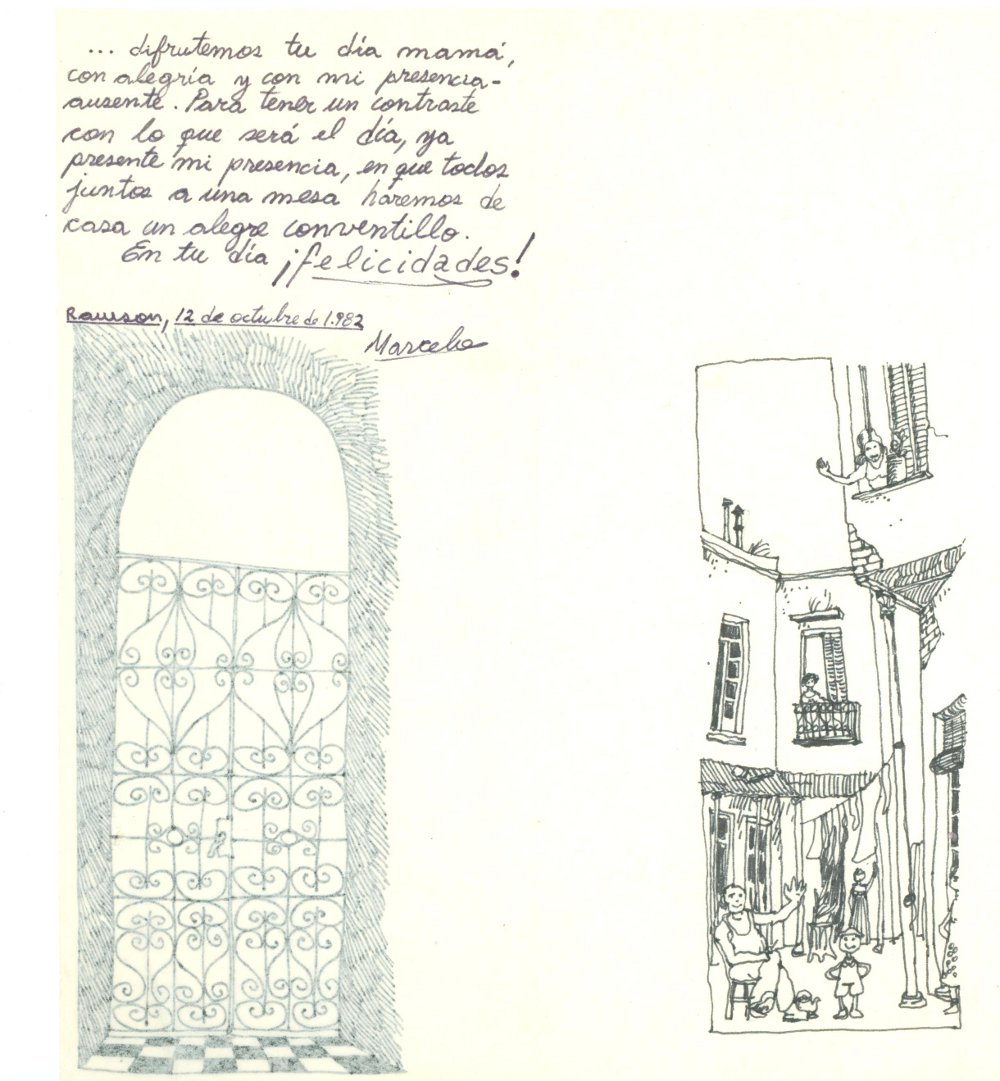 ... difrutemos tu día mamá,
con alegría y con mi presencia-
ausente. Para tener un contraste
con lo que será el día, ya
presente mi presencia, en que todos
juntos a una mesa haremos de
casa un alegre conventillo.
En tu día ¡felicidades!
Rawson, 12 de octubre de 1.982
Marcelo